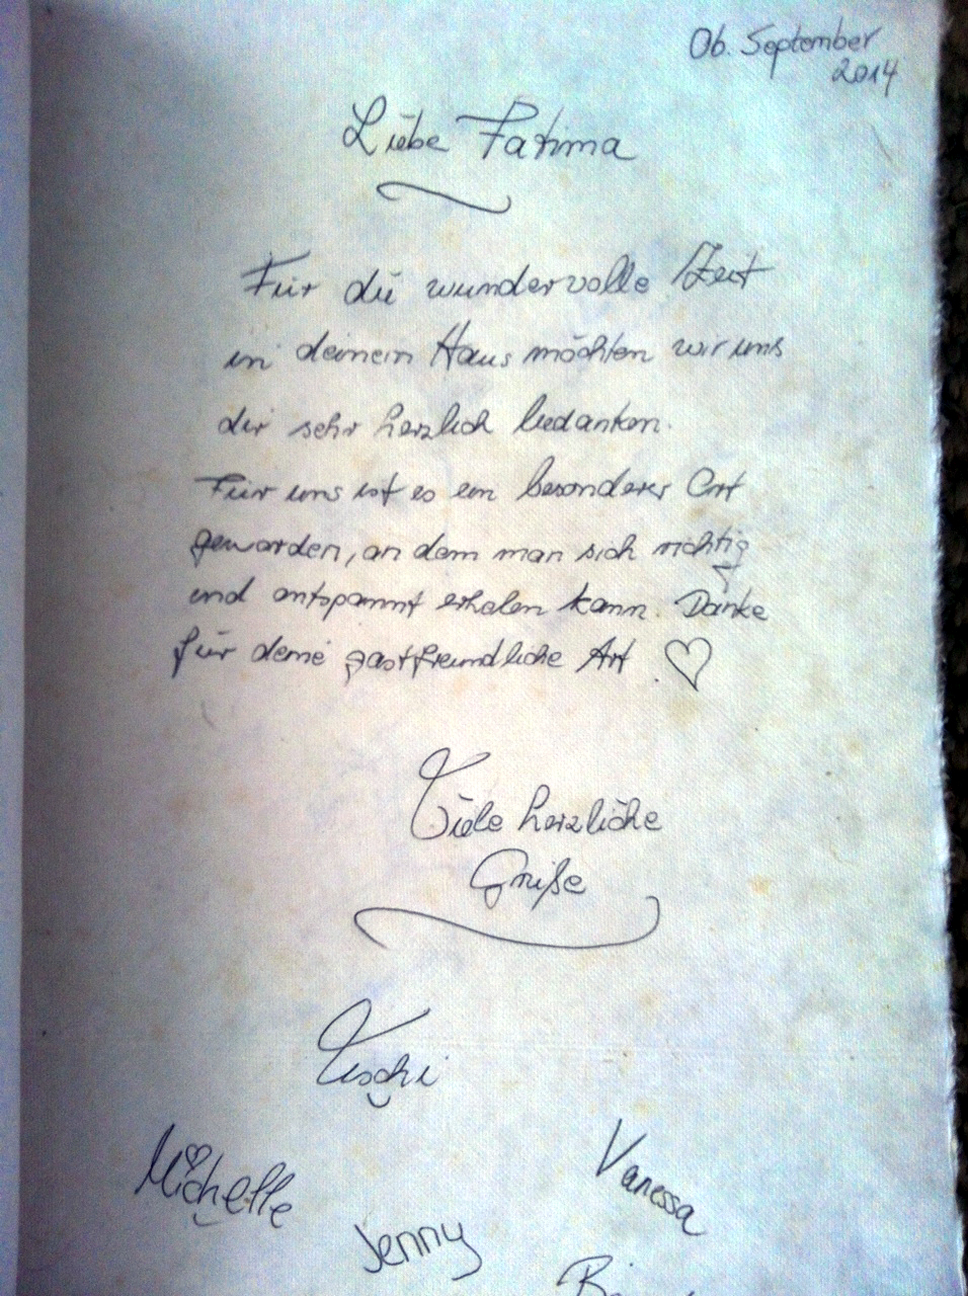 06. September
2014
Liebe Fatima
Für die wundervolle Zeit
in deinem Haus möchten wir uns
dir sehr herzlich bedanken.
Für uns ist es ein besonderer Ort
geworden, an dem man sich richtig
und entspannt erholen kann. Danke
für deine gastfreundliche Art.
Viele herzliche
Grüße
Uschi
Michelle
Vanessa
Jenny